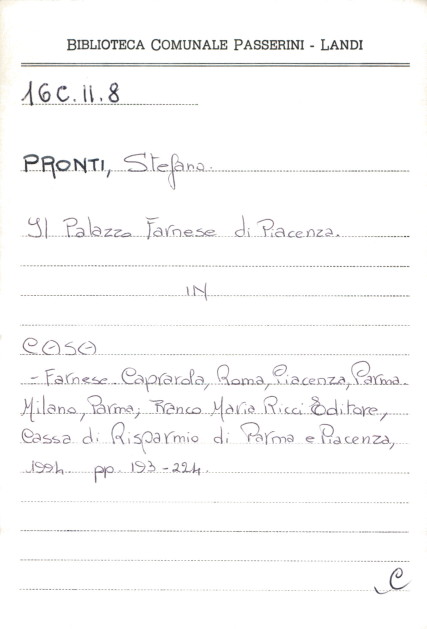 BIBLIOTECA COMUNALE PASSERINI - LANDI
16C.II.8
PRONTI, Stefano.
Il Palazzo Farnese di Piacenza.
IN
CASA
- Farnese. Caprarola, Roma, Piacenza, Parma.
Milano, Parma; Franco Maria Ricci Editore,
Cassa di Risparmio di Parma e Piacenza,
1994. pp. 193-224.
C